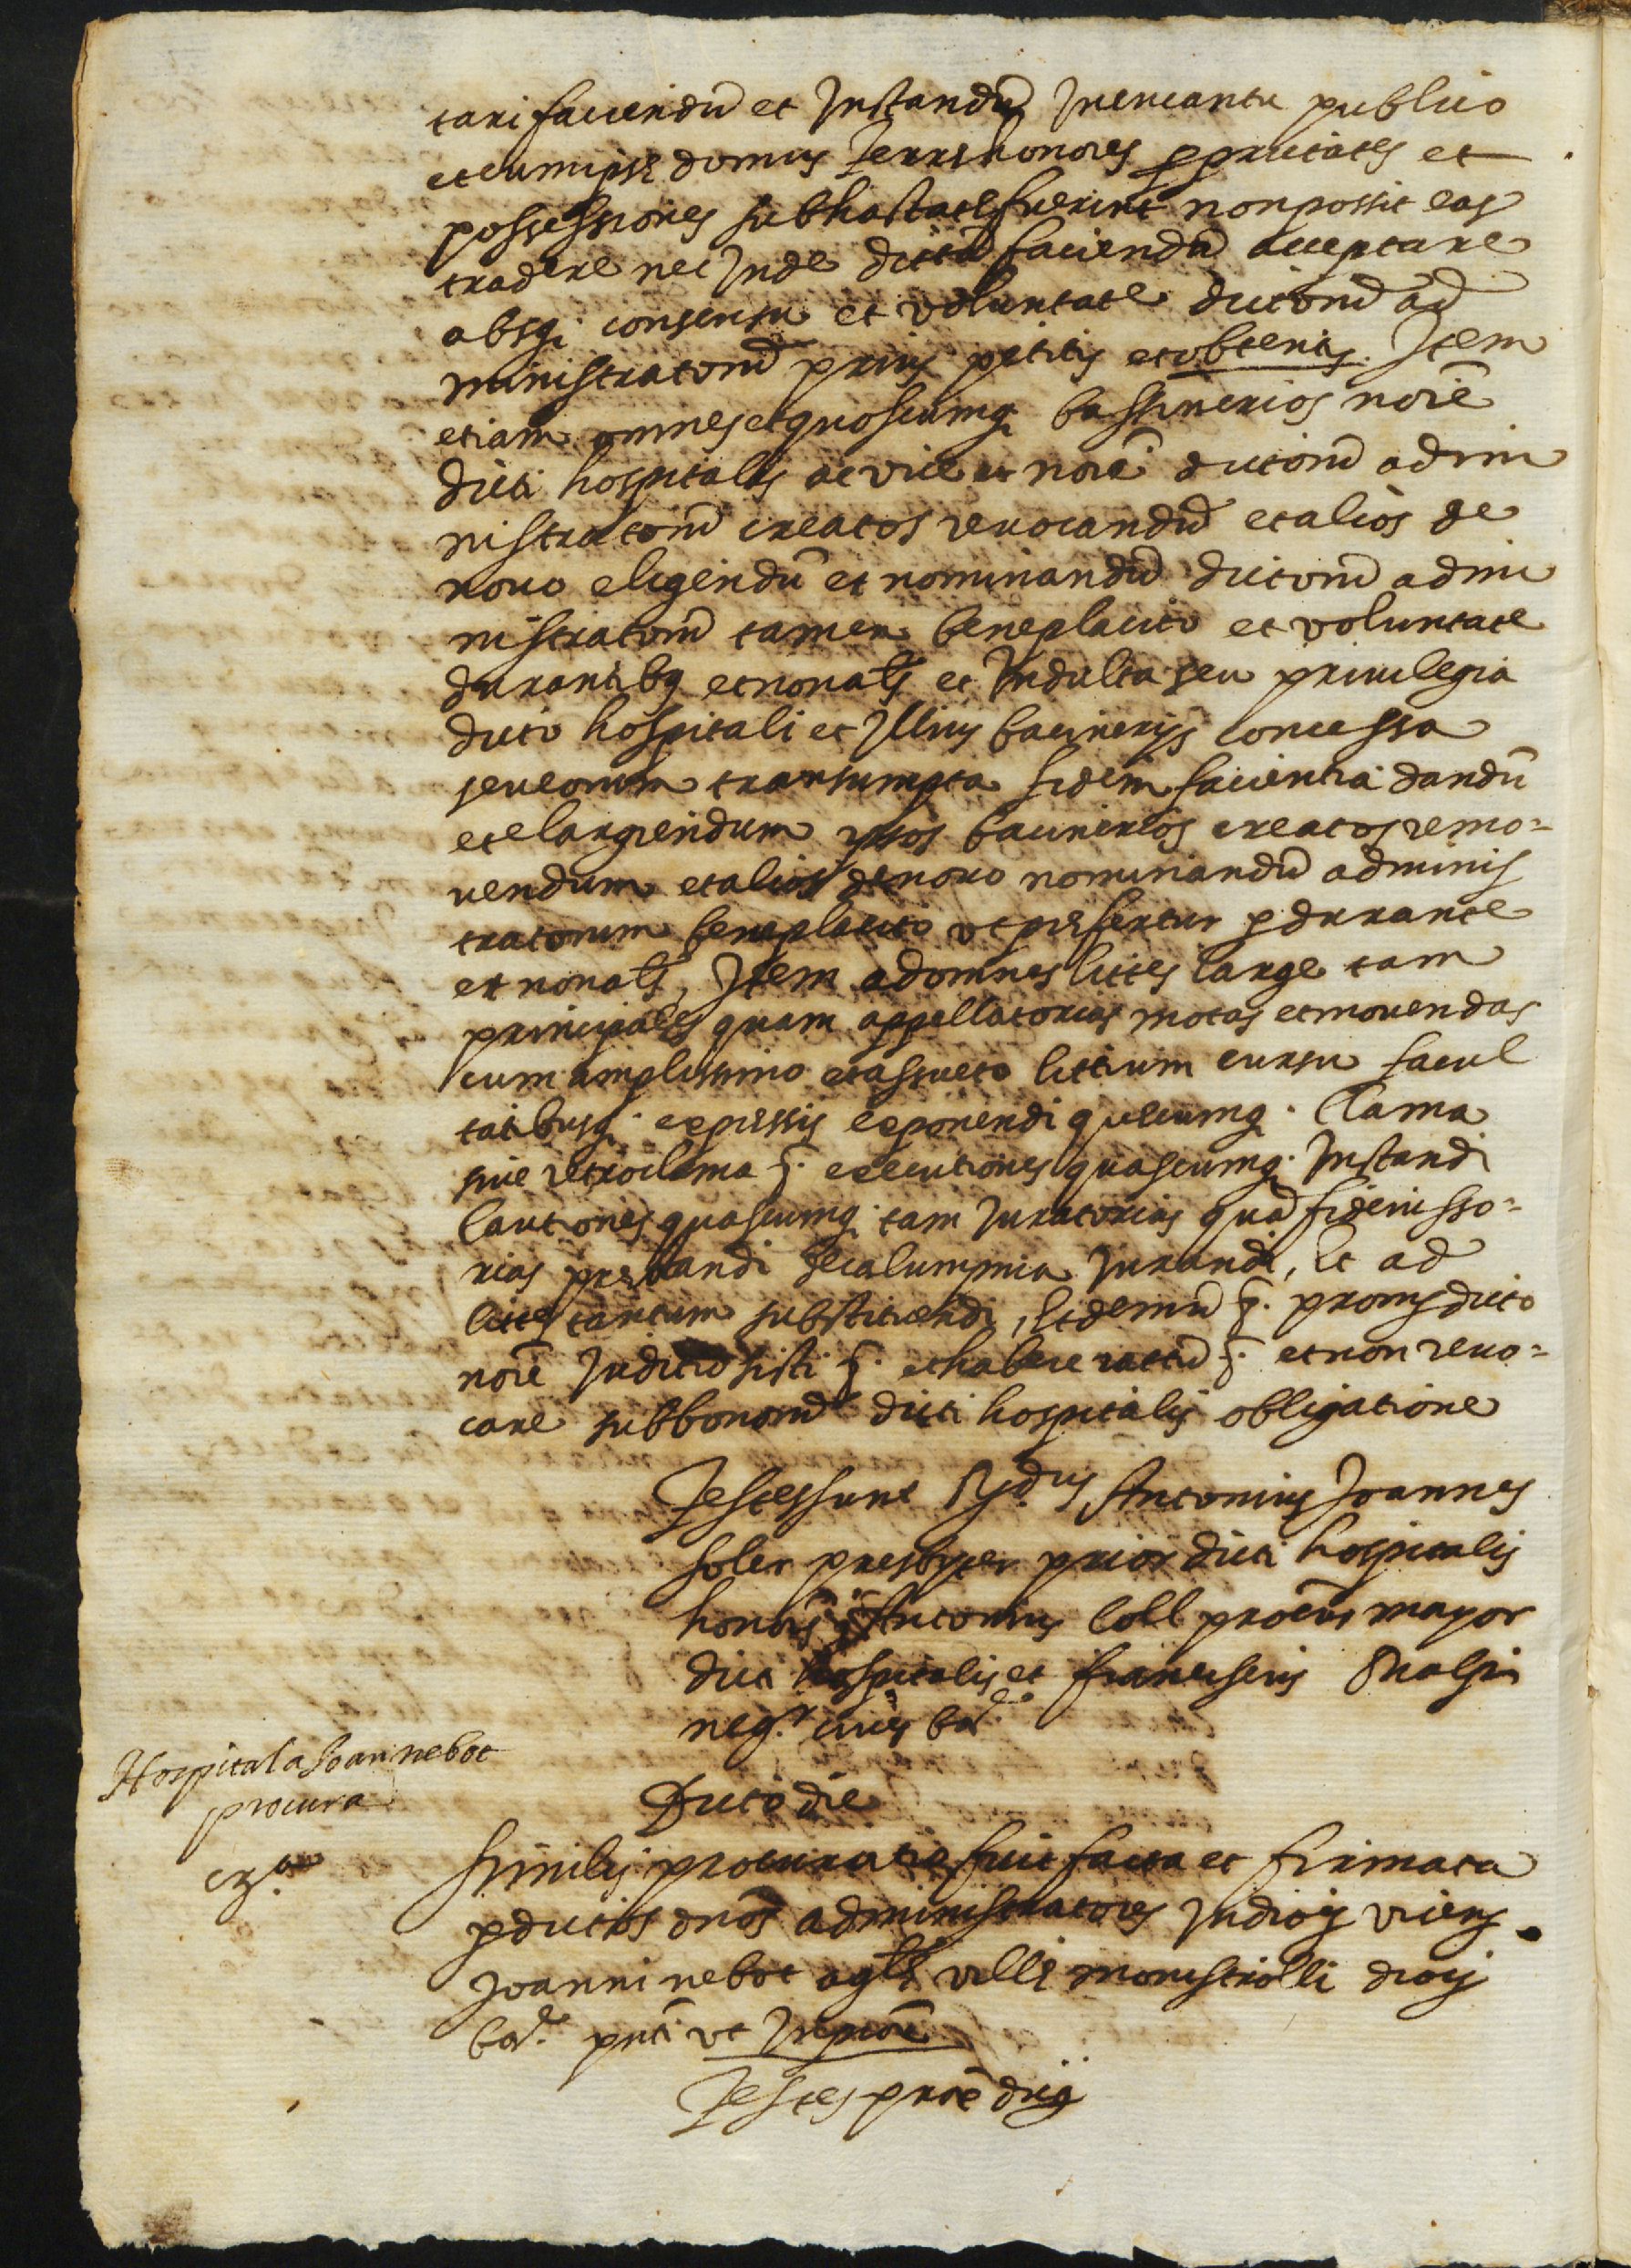 tari faciendū et Instandū Inencantu publico
et cum ipsę domus Terrę honores ꝓprietates et
possessiones subhastatę fuerint non possit eas
tradere nec Inde dictā faciendā acceptare
absq; consensu et voluntate dictorū ad
ministratorū prius petitis et obtentis. Item
etiam omnes et quoscumq; bassinerios noīe
dicti hospitalis ac vice et noīe dictorū admi
nistratorū creatos revocandū et alios de
novo eligendū et nominandū dictorū admi
nistratorū tamen beneplacito et voluntate
durantibꝫ et non als̄ et Indulta seu privilegia
dicto hospitali et Illius bacinerijs concessa
seu eorum transumpta fidem facientia dandū
et elargiendum ipsos bacinerios creatos remo=
vendum et alios de novo nominandū adminis
tratorum beneplacito ut pręfertur ꝑdurante
et non als̄, Item ad omnes lites large tam
principales quam appellatorias motas et movendas
cum amplissimo et assueto littium cursu facul
tatibusq; expressis exponendi quecumq; clama
sive retroclama ꝛ. executiones quascumq; Instandi
Cautiones quascumq; tam Juratorias quā fideiusso=
rias prestandi de calumpnia Jurandi, Et ad
lites tantum substituendi, Et demū ꝛ. promis dicto
noīe Juditio sisti ꝛ. et habere ratū ꝛ. et non revo=
care sub bonorū dicti hospitalis obligatione
Testes sunt Rdus Antonius Joannes
Soler presbyter prior dicti hospitalis
honorꝫ Antonius Coll procur maior
dicti hospitalis et franciscus
negr cives bar.
Hospital a Joan nebot
procura
Dicto die
Similis procuratio fuit facta et firmata
ꝑ dictos dnōs administratores Indicꝫ vicens
Joanni nebot agla villę monistrolli diocꝫ
bar. pntī ut In prox̄e
Testes proxē dicti